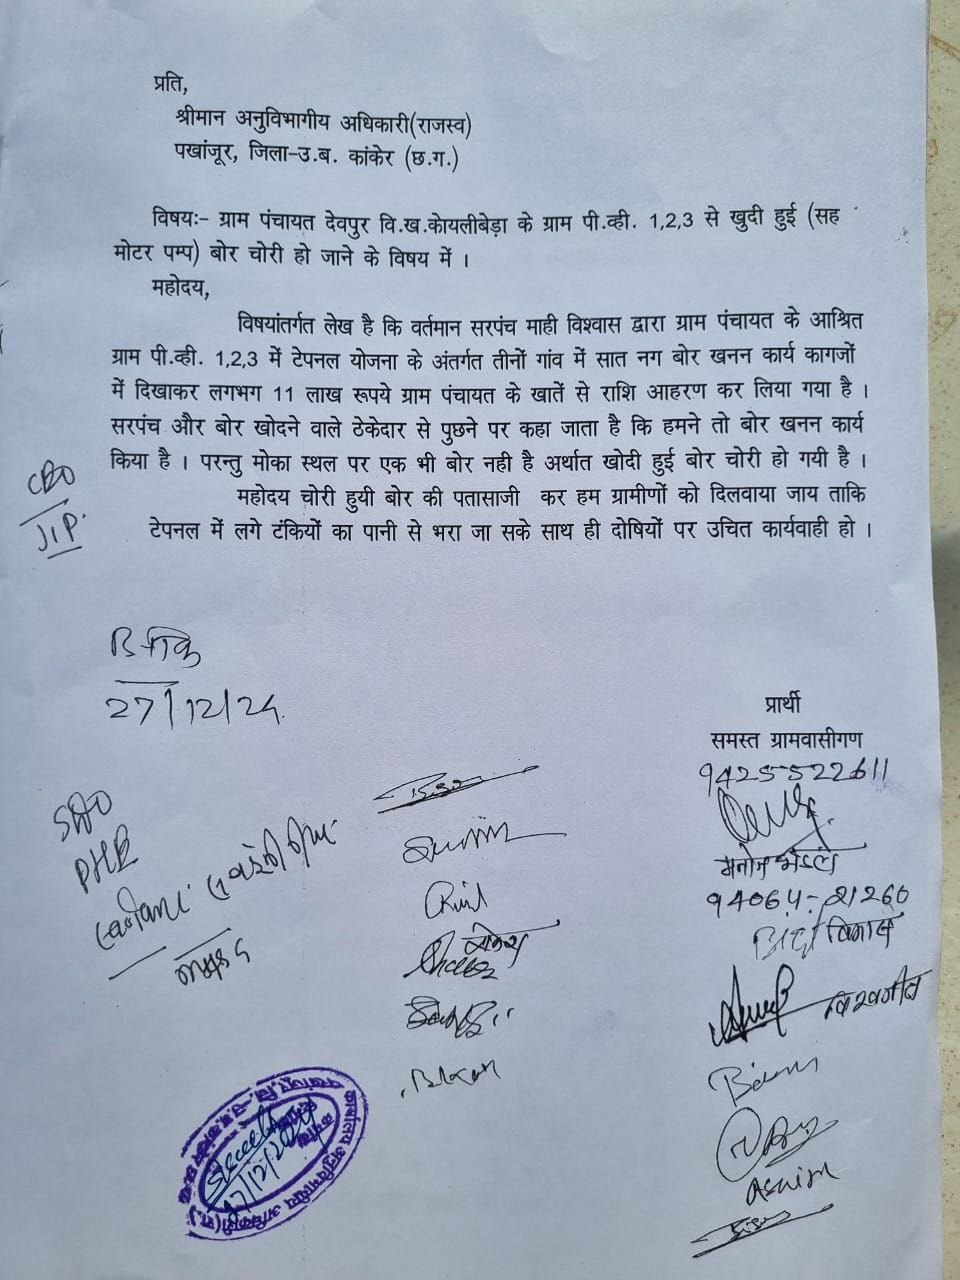 प्रति,
श्रीमान अनुविभागीय अधिकारी(राजस्व)
पखांजूर, जिला-उ.ब. कांकेर (छ.ग.)
विषयः- ग्राम पंचायत देवपुर वि.ख.कोयलीबेड़ा के ग्राम पी.व्ही. 1,2,3 से खुदी हुई (सह
मोटर पम्प) बोर चोरी हो जाने के विषय में ।
महोदय,
विषयांतर्गत लेख है कि वर्तमान सरपंच माही विश्वास द्वारा ग्राम पंचायत के आश्रित
ग्राम पी.व्ही. 1,2,3 में टेपनल योजना के अंतर्गत तीनों गांव में सात नग बोर खनन कार्य कागजों
में दिखाकर लगभग 11 लाख रूपये ग्राम पंचायत के खातें से राशि आहरण कर लिया गया है ।
सरपंच और बोर खोदने वाले ठेकेदार से पुछने पर कहा जाता है कि हमने तो बोर खनन कार्य
किया है । परन्तु मोका स्थल पर एक भी बोर नही है अर्थात खोदी हुई बोर चोरी हो गयी है ।
महोदय चोरी हुयी बोर की पतासाजी कर हम ग्रामीणों को दिलवाया जाय ताकि
टेपनल में लगे टंकियों का पानी से भरा जा सके साथ ही दोषियों पर उचित कार्यवाही हो ।
CEO
JIP.
27/12/24
प्रार्थी
समस्त ग्रामवासीगण
9425-522611
SDO
PHE
मनोज मंडल
94064-21260
विश्वजीत
Ashim
कार्यालय अनुविभागीय अधिकारी (रा.)
27/12/2024